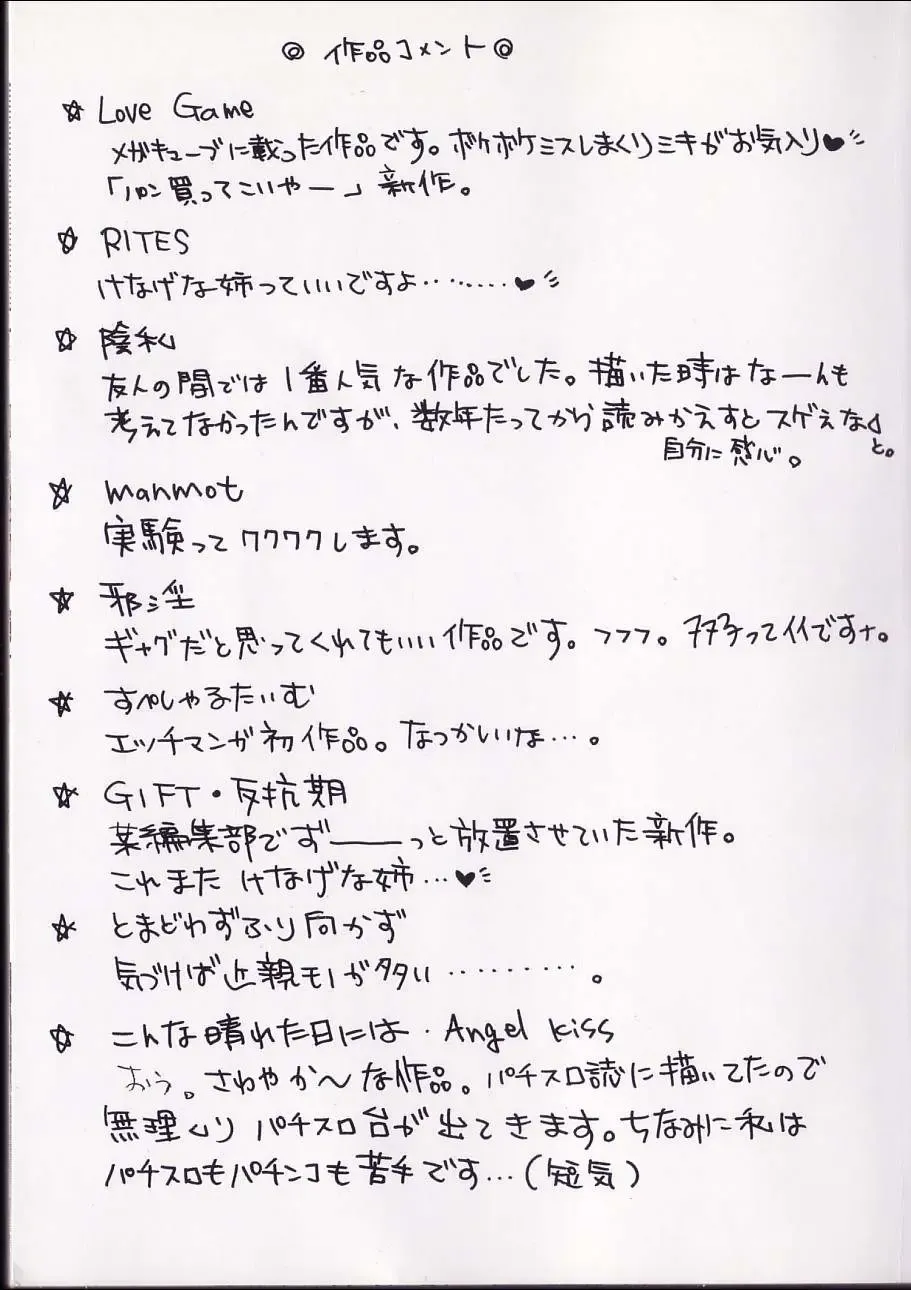 ◎ 作品コメント◎
☆ Love Game
メガキューブに載った作品です。ボケボケミスしまくりミキがお気入り♥
「パン買ってこいやー」新作。
☆ RITES
けなげな姉っていいですよ‥‥‥‥♥
☆ 陰私
友人の間では1番人気な作品でした。描いた時はなーんも
考えてなかったんですが、数年たってから読みかえすとスゲえな」と。
自分に感心。
☆ manmot
実験ってワクワクします。
☆ 邪淫
ギャグだと思ってくれてもいい作品です。フフフ。ってイイですナ。
☆ すぺしゃるたいむ
エッチマンガ初作品。なつかいいな…。
☆ GIFT・反抗期
某編集部でず――っと放置させていた新作。
これまたけなげな姉…♥
☆ とまどわずふり向かず
気づけば近親モノが多い………。
☆ こんな晴れた日には・Angel kiss
おう。さわやか〜な作品。パチスロ誌に描いてたので
無理くりパチスロ台が出てきます。ちなみに私は
パチスロもパチンコも苦手です…(短気)